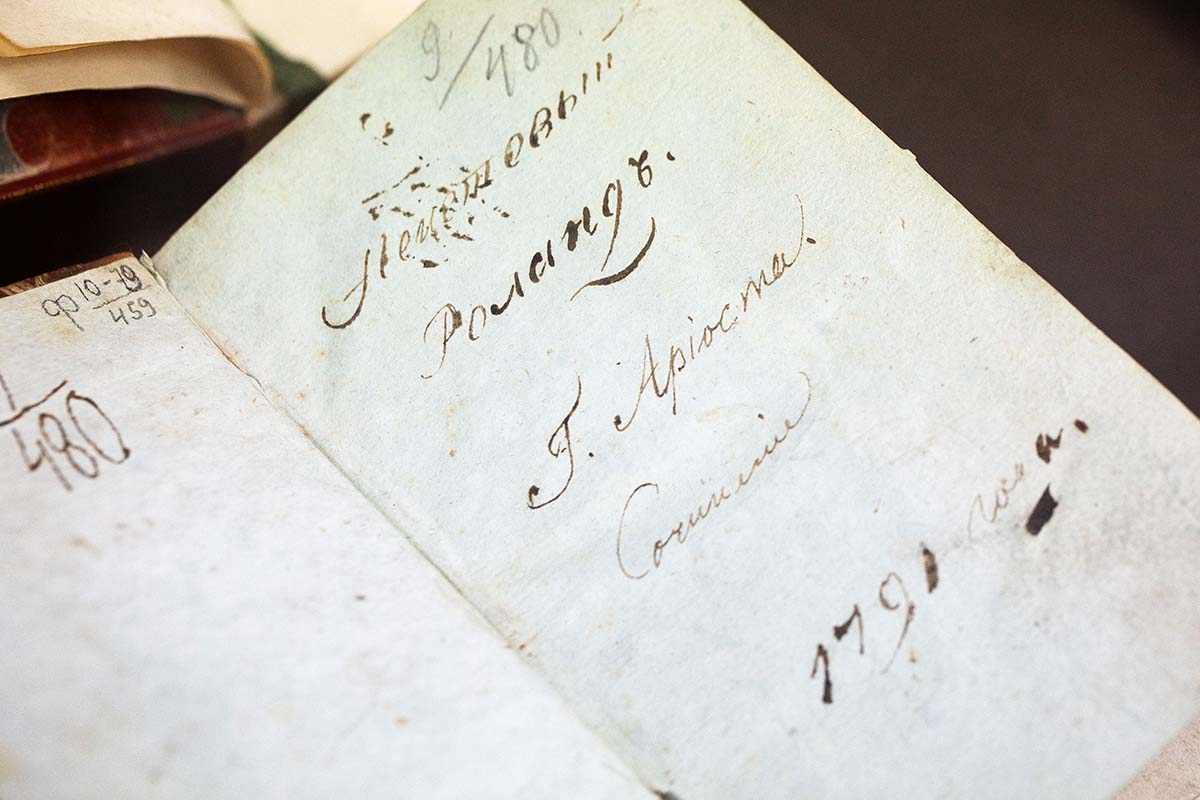 ф10-79
459
1
480
9/480.
Неистовый
Роландъ.
Г. Аріоста.
Сочиненіе
1791 года.